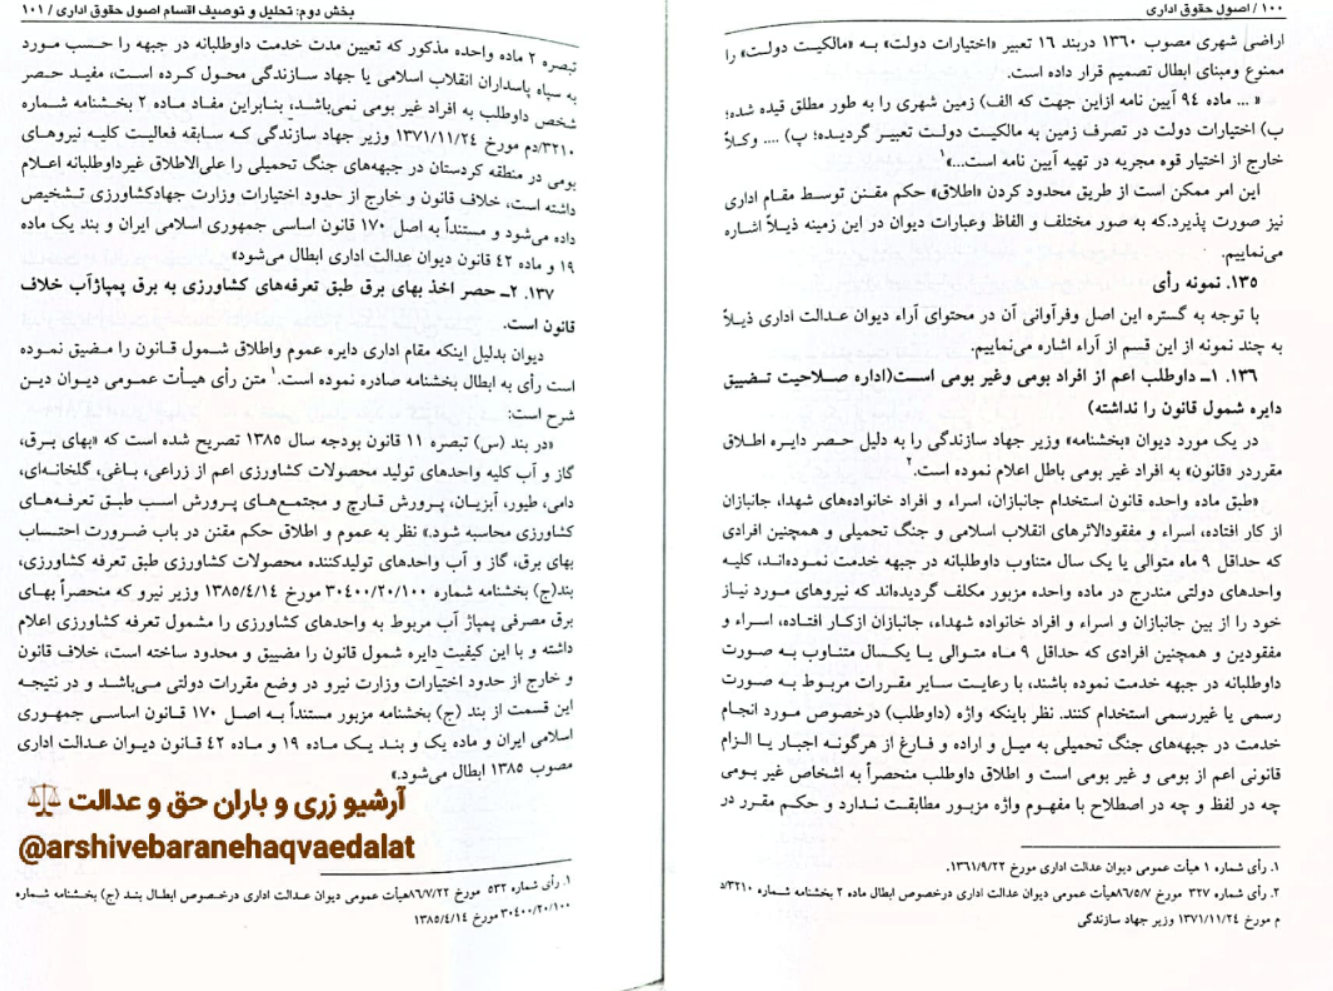 ۱۰۰ / اصول حقوق اداری
اراضی شهری مصوب ۱۳۶۰ دربند ۱۶ تعبیر «اختیارات دولت» به «مالکیت دولت» را
ممنوع ومبنای ابطال تصمیم قرار داده است.
« ... ماده ۹٤ آیین نامه ازاین جهت که الف) زمین شهری را به طور مطلق قیده شده؛
ب) اختیارات دولت در تصرف زمین به مالکیت دولت تعبیر گردیده؛ پ) .... وکلاً
خارج از اختیار قوه مجریه در تهیه آیین نامه است...»۱
این امر ممکن است از طریق محدود کردن «اطلاق» حکم مقنن توسط مقام اداری
نیز صورت پذیرد.که به صور مختلف و الفاظ وعبارات دیوان در این زمینه ذیلاً اشاره
می‌نماییم.
۱۳۵. نمونه رأی
با توجه به گستره این اصل وفرآوانی آن در محتوای آراء دیوان عدالت اداری ذیلاً
به چند نمونه از این قسم از آراء اشاره می‌نماییم.
۱۳۶. ۱ـ داوطلب اعم از افراد بومی وغیر بومی است(اداره صلاحیت تضییق
دایره شمول قانون را نداشته)
در یک مورد دیوان «بخشنامه» وزیر جهاد سازندگی را به دلیل حصر دایره اطلاق
مقرردر «قانون» به افراد غیر بومی باطل اعلام نموده است.۲
«طبق ماده واحده قانون استخدام جانبازان، اسراء و افراد خانواده‌های شهدا، جانبازان
از کار افتاده، اسراء و مفقودالاثرهای انقلاب اسلامی و جنگ تحمیلی و همچنین افرادی
که حداقل ۹ ماه متوالی یا یک سال متناوب داوطلبانه در جبهه خدمت نموده‌اند، کلیه
واحدهای دولتی مندرج در ماده واحده مزبور مکلف گردیده‌اند که نیروهای مورد نیاز
خود را از بین جانبازان و اسراء و افراد خانواده شهداء، جانبازان ازکار افتاده، اسراء و
مفقودین و همچنین افرادی که حداقل ۹ ماه متوالی یا یکسال متناوب به صورت
داوطلبانه در جبهه خدمت نموده باشند، با رعایت سایر مقررات مربوط به صورت
رسمی یا غیررسمی استخدام کنند. نظر باینکه واژه (داوطلب) درخصوص مورد انجام
خدمت در جبهه‌های جنگ تحمیلی به میل و اراده و فارغ از هرگونه اجبار یا الزام
قانونی اعم از بومی و غیر بومی است و اطلاق داوطلب منحصراً به اشخاص غیر بومی
چه در لفظ و چه در اصطلاح با مفهوم واژه مزبور مطابقت ندارد و حکم مقرر در
۱. رأی شماره ۱ هیأت عمومی دیوان عدالت اداری مورخ ۱۳٦۱/۹/۲۲.
۲. رأی شماره ۳۲۷ مورخ ۸٦/٥/۷هیأت عمومی دیوان عدالت اداری درخصوص ابطال ماده ۲ بخشنامه شماره ۳۲۱۰/د
م مورخ ۱۳۷۱/۱۱/۲٤ وزیر جهاد سازندگی
بخش دوم: تحلیل و توصیف اقسام اصول حقوق اداری / ۱۰۱
تبصره ۲ ماده واحده مذکور که تعیین مدت خدمت داوطلبانه در جبهه را حسب مورد
به سپاه پاسداران انقلاب اسلامی یا جهاد سازندگی محول کرده است، مفید حصر
شخص داوطلب به افراد غیر بومی نمی‌باشد، بنابراین مفاد ماده ۲ بخشنامه شماره
۳۲۱۰/دم مورخ ۱۳۷۱/۱۱/۲٤ وزیر جهاد سازندگی که سابقه فعالیت کلیه نیروهای
بومی در منطقه کردستان در جبهه‌های جنگ تحمیلی را علی‌الاطلاق غیرداوطلبانه اعلام
داشته است، خلاف قانون و خارج از حدود اختیارات وزارت جهادکشاورزی تشخیص
داده می‌شود و مستنداً به اصل ۱۷۰ قانون اساسی جمهوری اسلامی ایران و بند یک ماده
۱۹ و ماده ٤۲ قانون دیوان عدالت اداری ابطال می‌شود»
۱۳۷. ۲ـ حصر اخذ بهای برق طبق تعرفه‌های کشاورزی به برق پمپاژآب خلاف
قانون است.
دیوان بدلیل اینکه مقام اداری دایره عموم واطلاق شمول قانون را مضیق نموده
است رأی به ابطال بخشنامه صادره نموده است.۱ متن رأی هیأت عمومی دیوان دین
شرح است:
«در بند (س) تبصره ۱۱ قانون بودجه سال ۱۳۸۵ تصریح شده است که «بهای برق،
گاز و آب کلیه واحدهای تولید محصولات کشاورزی اعم از زراعی، باغی، گلخانه‌ای،
دامی، طیور، آبزیان، پرورش قارچ و مجتمع‌های پرورش اسب طبق تعرفه‌های
کشاورزی محاسبه شود.» نظر به عموم و اطلاق حکم مقنن در باب ضرورت احتساب
بهای برق، گاز و آب واحدهای تولیدکننده محصولات کشاورزی طبق تعرفه کشاورزی،
بند(ج) بخشنامه شماره ۳۰٤۰۰/۲۰/۱۰۰ مورخ ۱۳۸٥/٤/۱٤ وزیر نیرو که منحصراً بهای
برق مصرفی پمپاژ آب مربوط به واحدهای کشاورزی را مشمول تعرفه کشاورزی اعلام
داشته و با این کیفیت دایره شمول قانون را مضییق و محدود ساخته است، خلاف قانون
و خارج از حدود اختیارات وزارت نیرو در وضع مقررات دولتی می‌باشد و در نتیجه
این قسمت از بند (ج) بخشنامه مزبور مستنداً به اصل ۱۷۰ قانون اساسی جمهوری
اسلامی ایران و ماده یک و بند یک ماده ۱۹ و ماده ٤۲ قانون دیوان عدالت اداری
مصوب ۱۳۸۵ ابطال می‌شود.»
آرشیو زری و باران حق و عدالت
@arshivebaranehaqvaedalat
۱. رأی شماره ٥۳۲ مورخ ۸٦/۷/۲۲هیأت عمومی دیوان عدالت اداری درخصوص ابطال بند (ج) بخشنامه شماره
۳۰٤۰۰/۲۰/۱۰۰ مورخ ۱۳۸٥/٤/۱٤